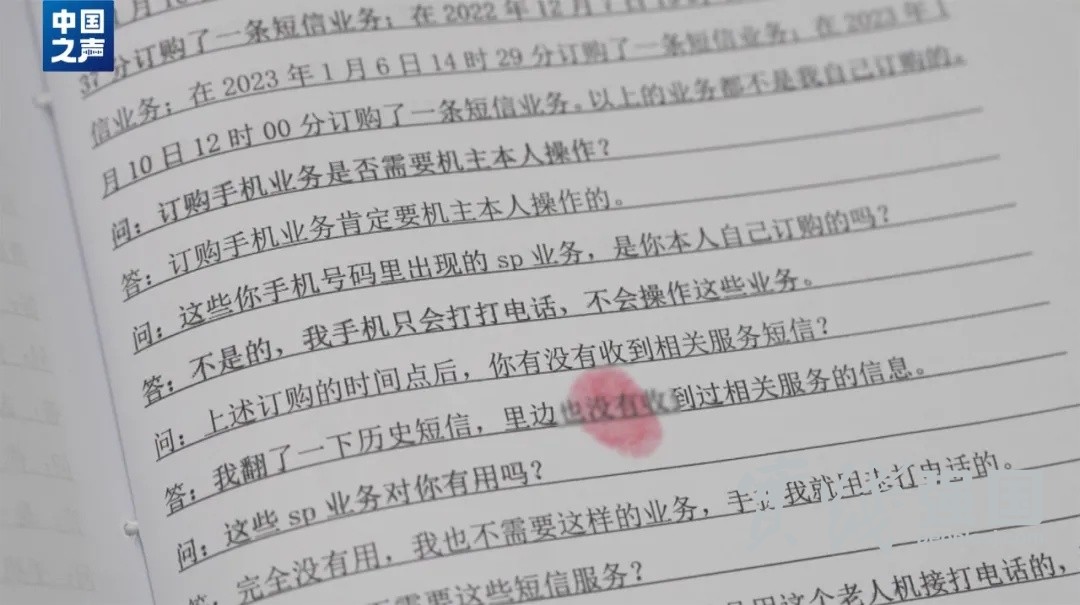 中国
之声
月
37 分订购了一条短信业务；在 2022 年 12 月 7 日
信业务；在 2023 年 1 月 6 日 14 时 29 分订购了一条短信业务；在 2023 年 1
月 10 日 12 时 00 分订购了一条短信业务。以上的业务都不是我自己订购的。
问：订购手机业务是否需要机主本人操作？
答：订购手机业务肯定要机主本人操作的。
问：这些你手机号码里出现的 sp 业务，是你本人自己订购的吗？
答：不是的，我手机只会打打电话，不会操作这些业务。
问：上述订购的时间点后，你有没有收到相关服务短信？
答：我翻了一下历史短信，里边也没有收到过相关服务的信息。
问：这些 sp 业务对你有用吗？
答：完全没有用，我也不需要这样的业务，手 我就 打电话的。
需要这些短信服务？
用这个老人机接打电话的，